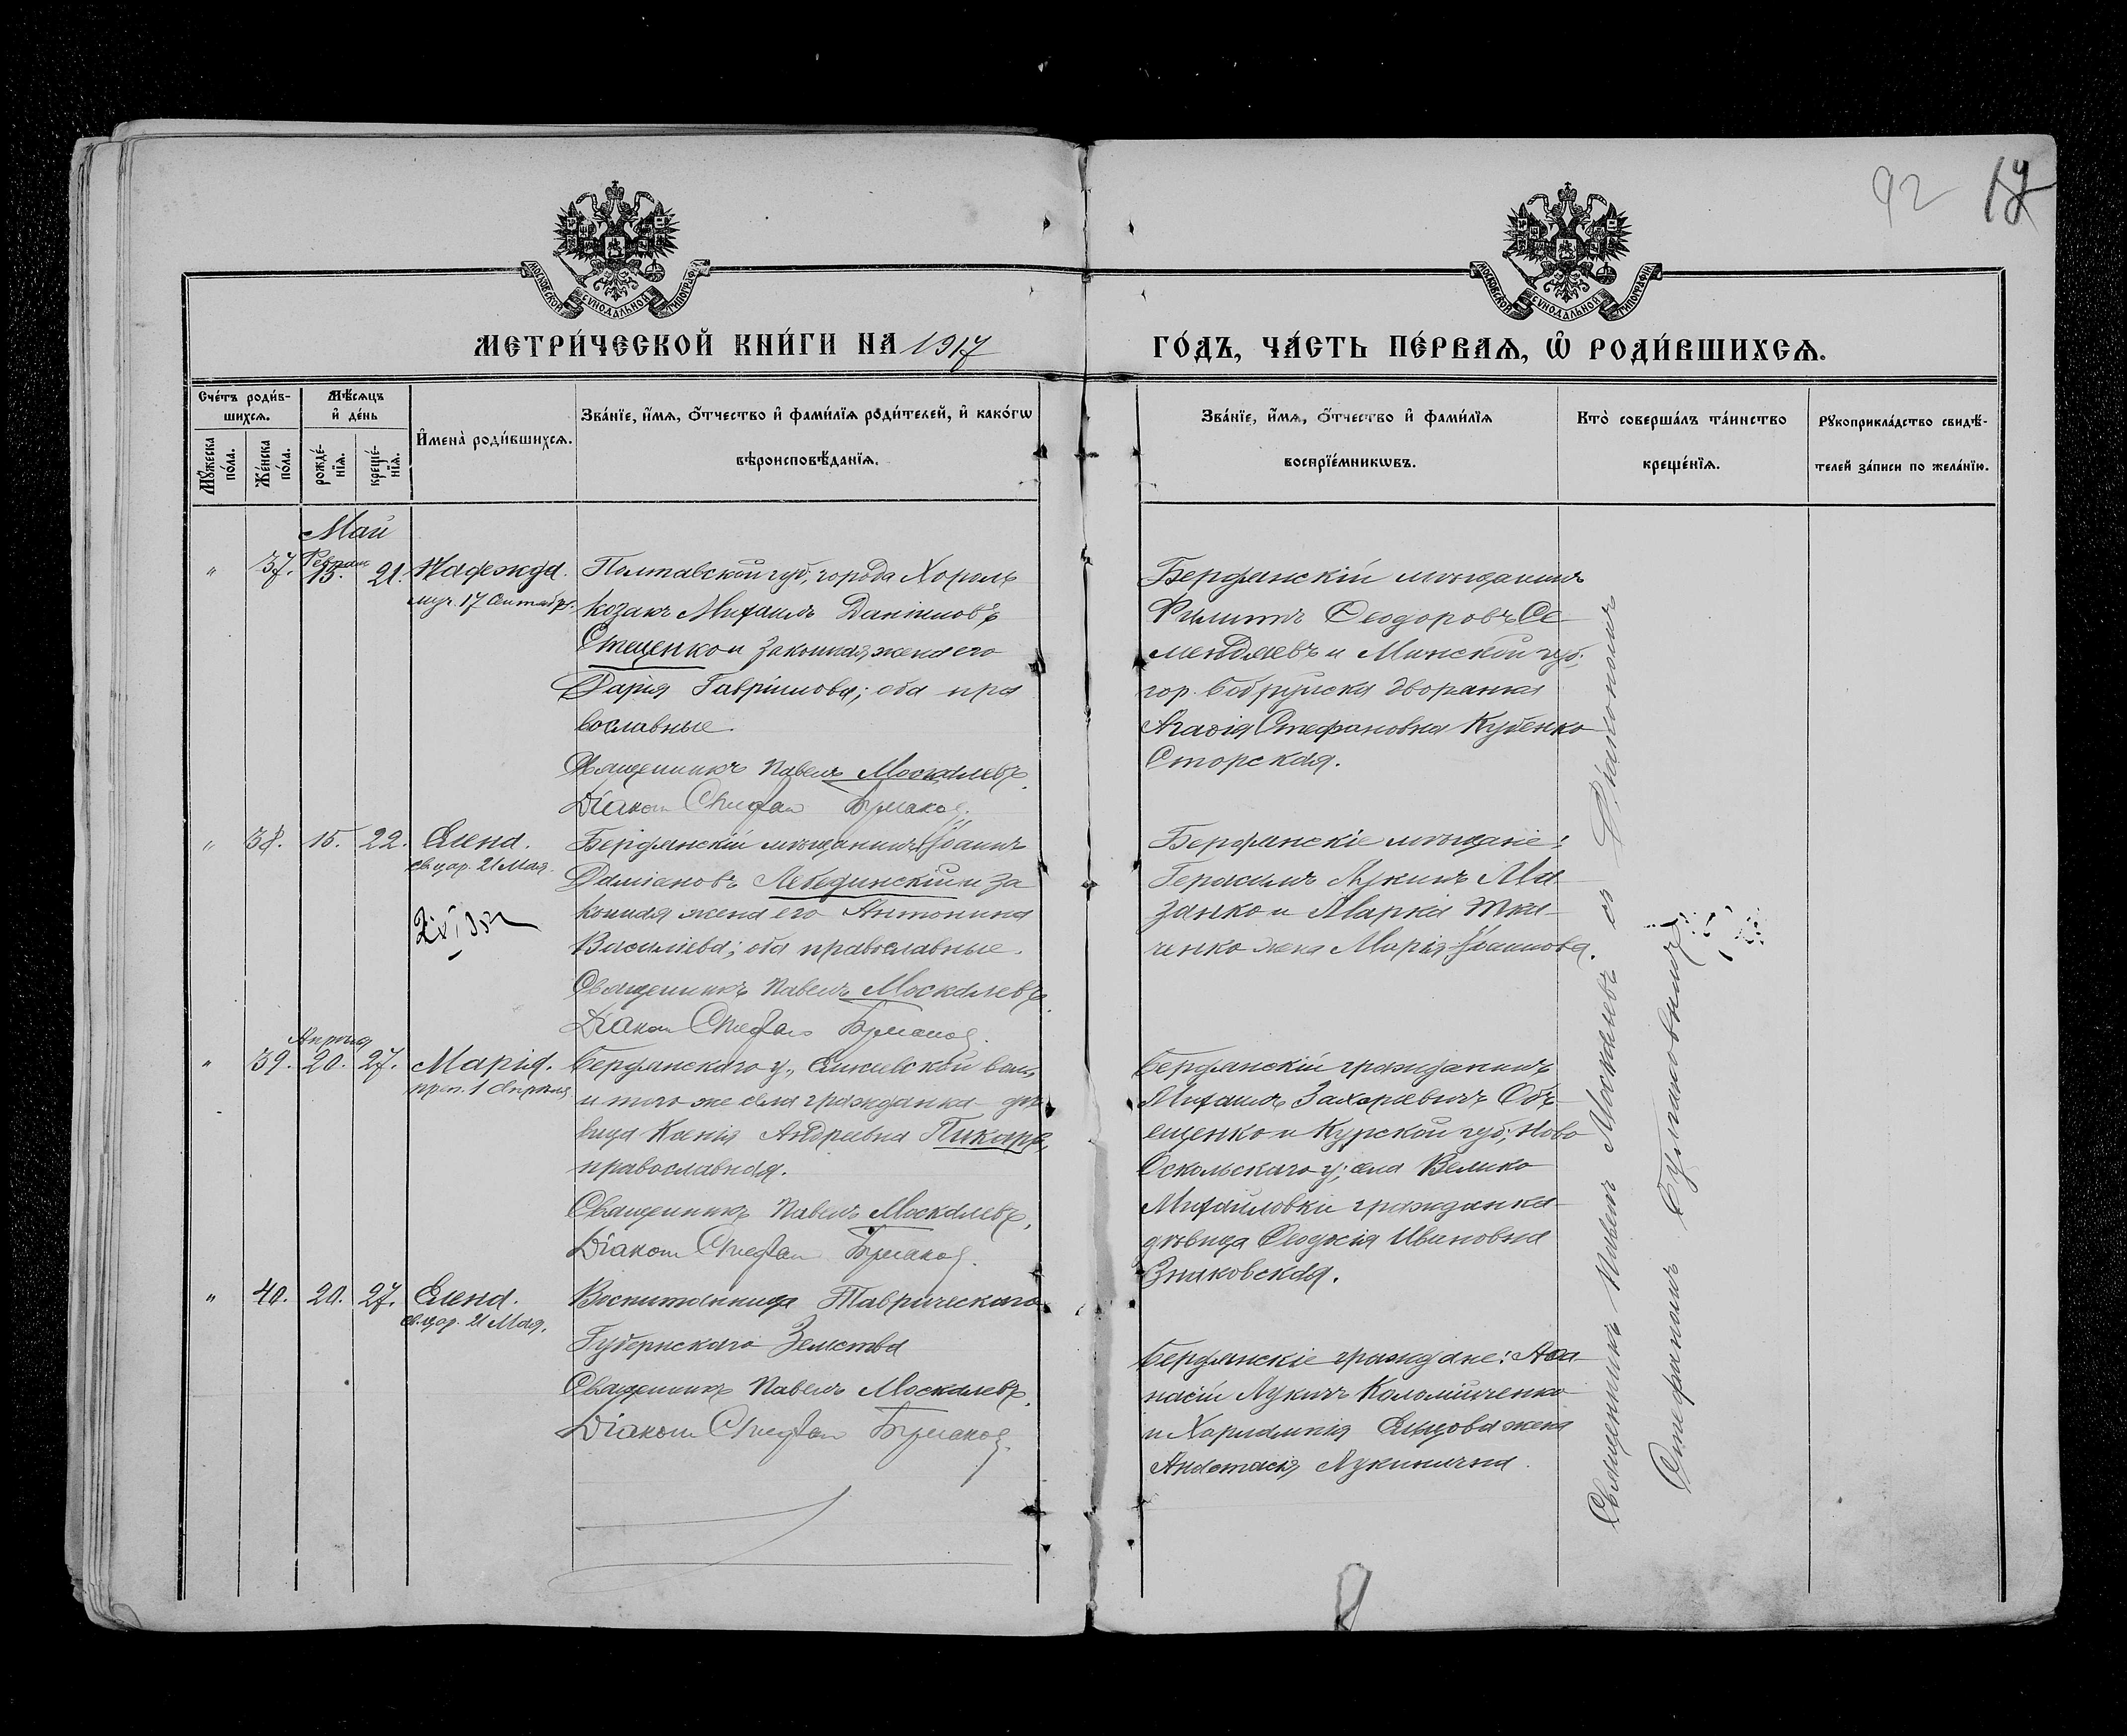 92 17
МОСКОВСКОЙ СѴНОДАЛЬНОЙ ТИПОГРАФІИ
МОСКОВСКОЙ СѴНОДАЛЬНОЙ ТИПОГРАФІИ
МЕТРИ́ЧЕСКОЙ КНИ́ГИ НА 1917
ГО́ДЪ, ЧА́СТЬ ПЕ́РВАѦ, Ѡ҆ РОДИ́ВШИХСѦ.
Сче́тъ роди́в-
шихсѧ.
Мꙋ́жеска
по́ла.
Же́нска
по́ла.
Мѣ́сѧцъ
и҆ де́нь
рожде́-
нїѧ.
креще́-
нїѧ.
И҆мена̀ роди́вшихсѧ.
Зва́нїе, и҆́мѧ, ѻ҆́тчество и҆ фами́лїѧ роди́телей, и҆ како́гѡ
вѣроисповѣ́данїѧ.
Зва́нїе, и҆́мѧ, ѻ҆́тчество и҆ фами́лїѧ
воспрїе́мникѡвъ.
Кто̀ соверша́лъ та́инство
креще́нїѧ.
Рꙋкоприкла́дство свидѣ́-
телей за́писи по жела́нїю.
Май
" 37. Феврал 15. 21. Надежда.
муч. 17 Сентябр.
Полтавской губ, города Хорола
козакъ Михаилъ Даніиловъ
Стеценко и законная жена его
Дарія Гавріилова; оба пра
вославные.
Священникъ Павелъ Москалевъ.
Діаконъ Стефан
Бердянскій мѣщанинъ
Филиппъ Ѳеодоровъ Се
мендяевъ и Минской губ.
гор. Бобруйска дворянка
Агаѳія Стефановна Кубенко
Сторская.
" 38. 15. 22. Елена.
св. цар. 21 Мая.
Бердянскій мѣщанинъ Іоаннъ
Даміановъ Лебединскій и за
конная жена его Антонина
Василіева; оба православные.
Священникъ Павелъ Москалевъ.
Діаконъ Стефан
Бердянскіе мѣщане:
Герасимъ Лукинъ Ма
занко и Марка Тка-
ченко жена Марія Іоаннова.
" 39. Апрѣля 20. 27. Марія.
преп. 1 Апрѣля.
Бердянскаго у., волос.
и того же села гражданка дѣ
вица Ксенія Андреевна
православная.
Священникъ Павелъ Москалевъ.
Діаконъ Стефан
Бердянскій гражданинъ
Михаилъ Захаріевичъ Объ-
ещенко и Курской губ; Ново
Оскольскаго у; села Велико
Михайловки гражданка
дѣвица Ѳеодосія Ивановна
Знаковская.
" 40. 20. 27. Елена.
св. цар. 21 Мая.
Воспитанница Таврическаго
Губернскаго Земства
Священникъ Павелъ Москалевъ.
Діаконъ Стефан
Бердянскіе граждане: Аѳа
насій Лукичъ Коломійченко
и Харлампія Ельцова жена
Анастасія Лукинична.
Священникъ Павелъ Москалевъ съ Діакономъ
Стефаномъ